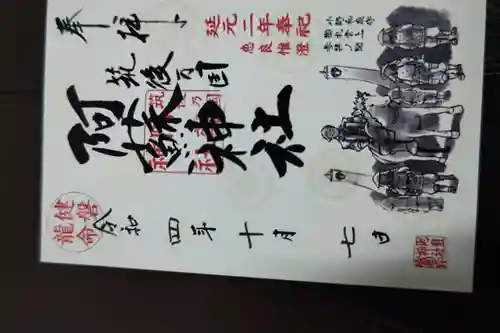 奉拝
延元二年奉祀
恵良惟澄
参詣ノ図
筑後乃国
阿蘇神社
健磐龍命
令和四年十月七日